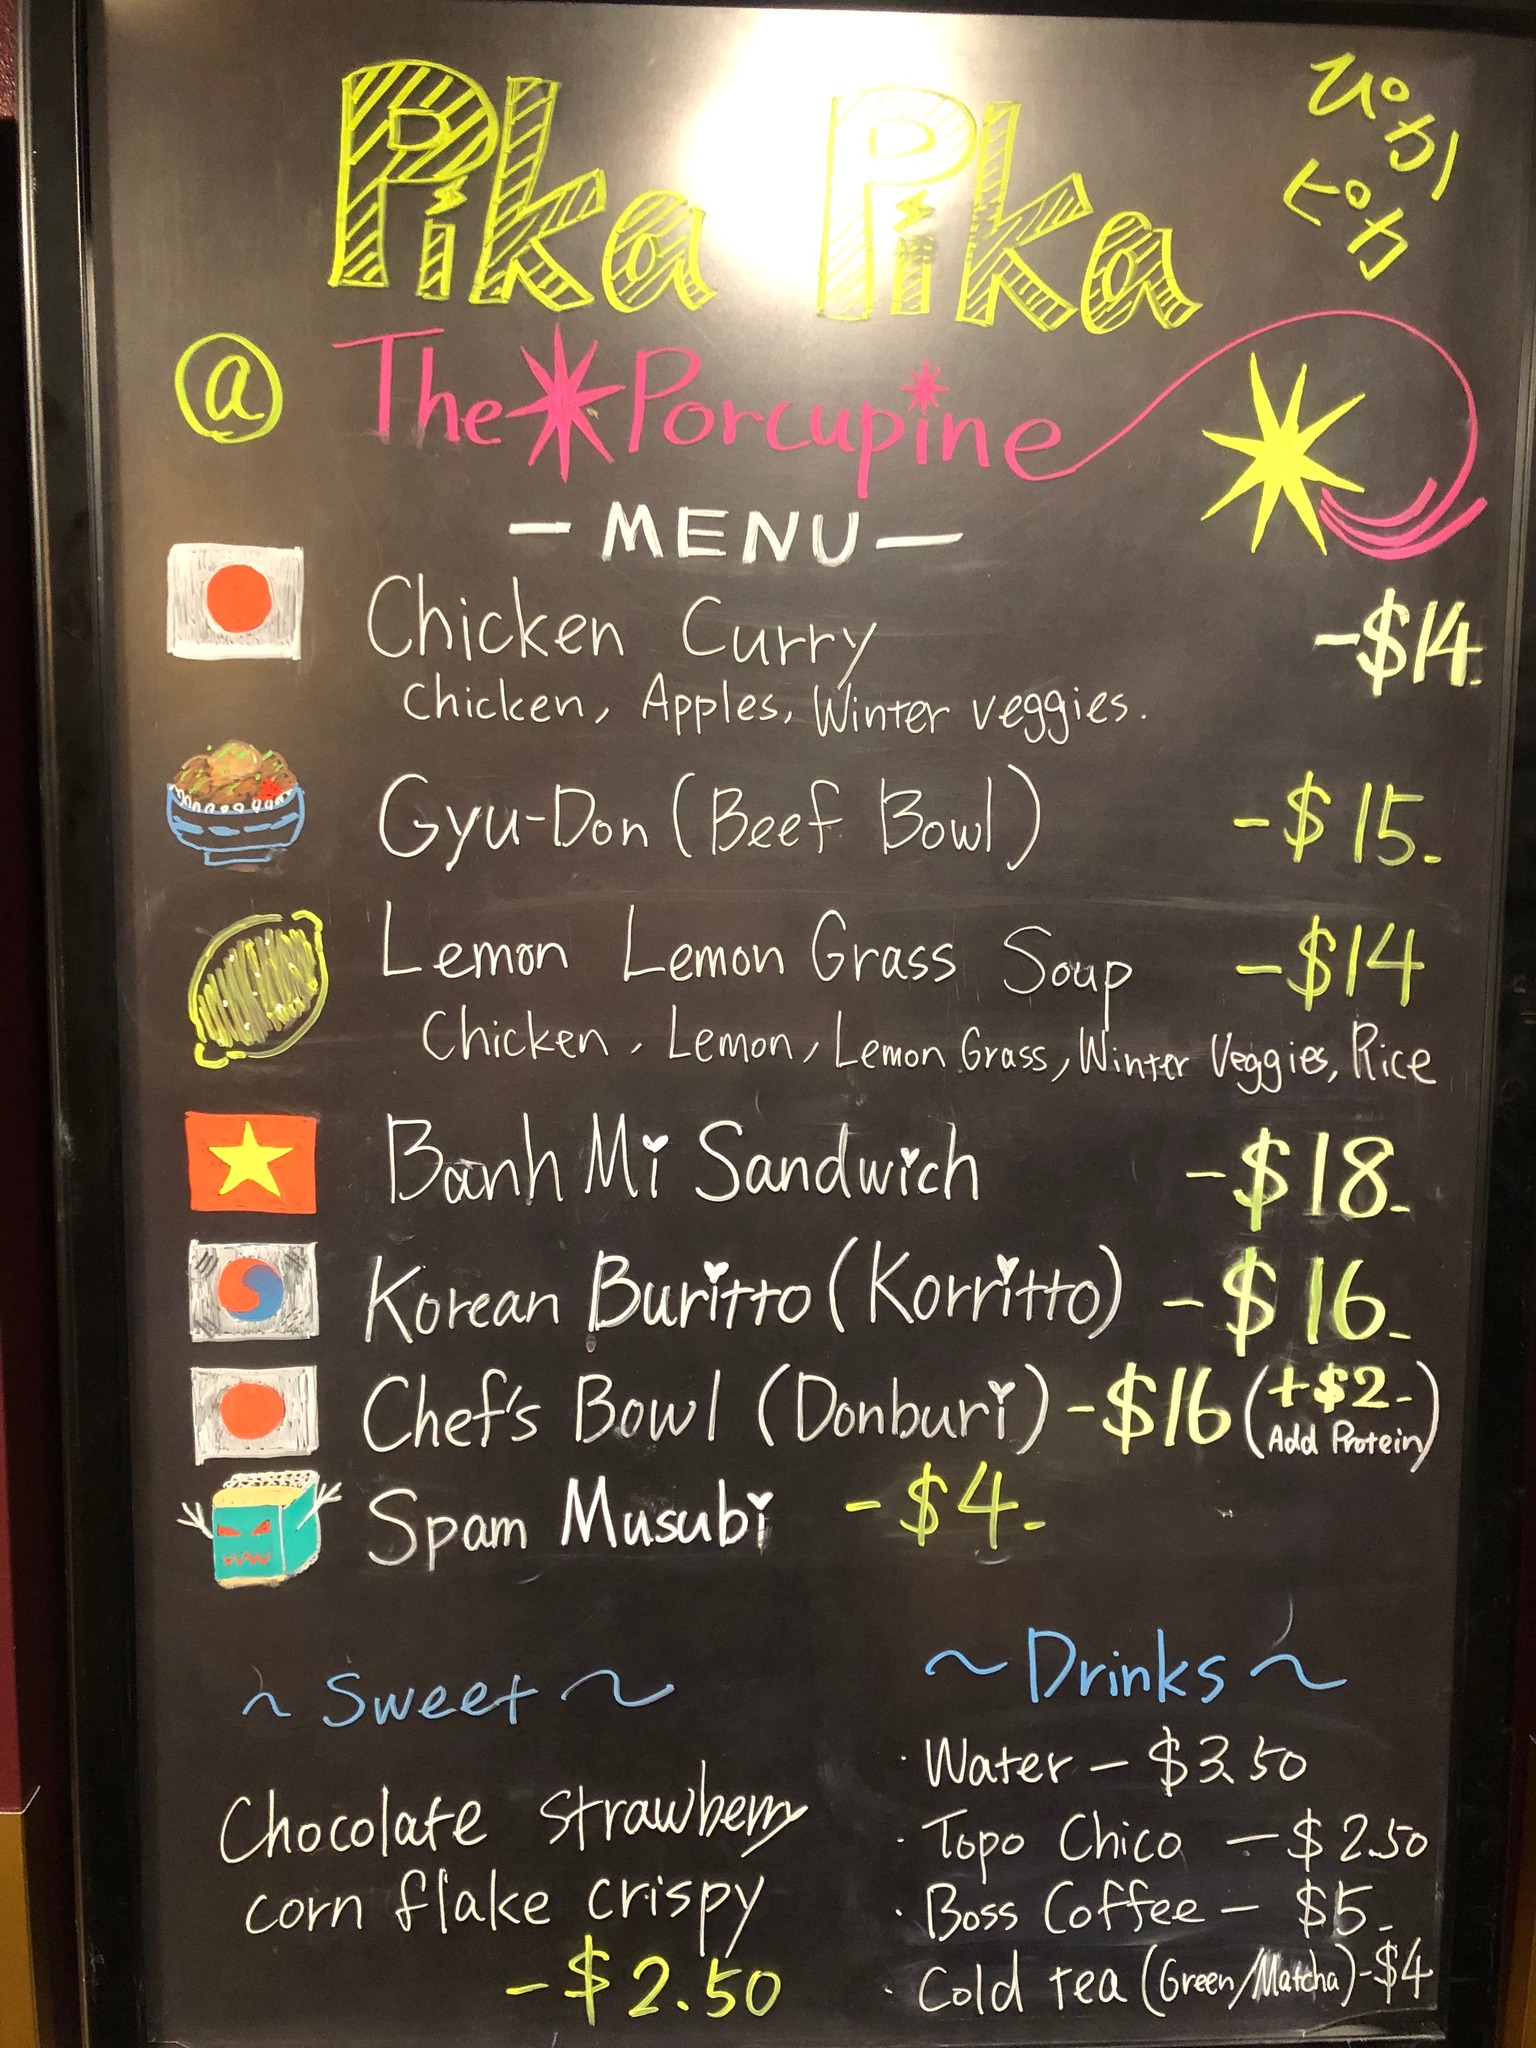 Pika Pika
ぴか
ピカ
@ The Porcupine
- MENU -
Chicken Curry -$14.
Chicken, Apples, Winter veggies.
Gyu-Don (Beef Bowl) -$15.
Lemon Lemon Grass Soup -$14
Chicken, Lemon, Lemon Grass, Winter Veggies, Rice
Banh Mi Sandwich -$18.
Korean Buritto (Korritto) -$16.
Chef's Bowl (Donburi) -$16 (+$2-
Add Protein)
Spam Musubi -$4.
~ Sweet ~
Chocolate strawberry
corn flake crispy
-$2.50
~ Drinks ~
· Water - $3.50
· Topo Chico - $2.50
· Boss Coffee - $5.
· Cold tea (Green/Matcha) -$4